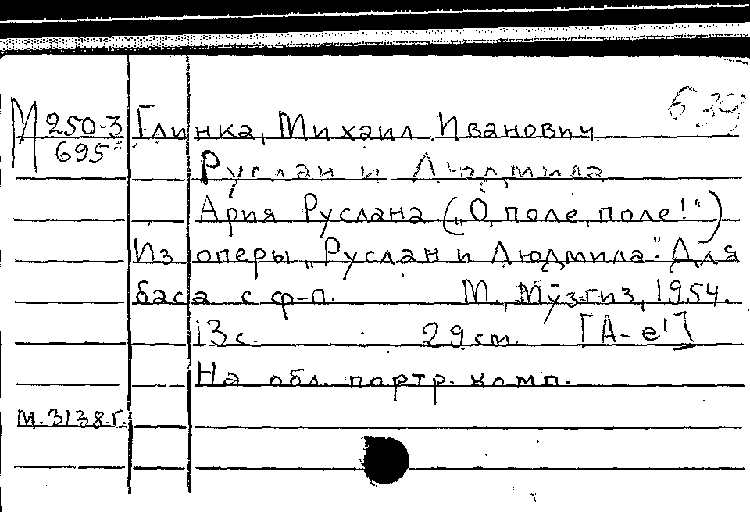 639
М 250-3 Глинка, Михаил Иванович
695 Руслан и Людмила
Ария Руслана („О, поле, поле!")
Из оперы „Руслан и Людмила". Для
баса с ф-п. М., Музгиз, 1954.
13 с. 29 см. [A-e']
На обл. портр. комп.
М. 3138 г.